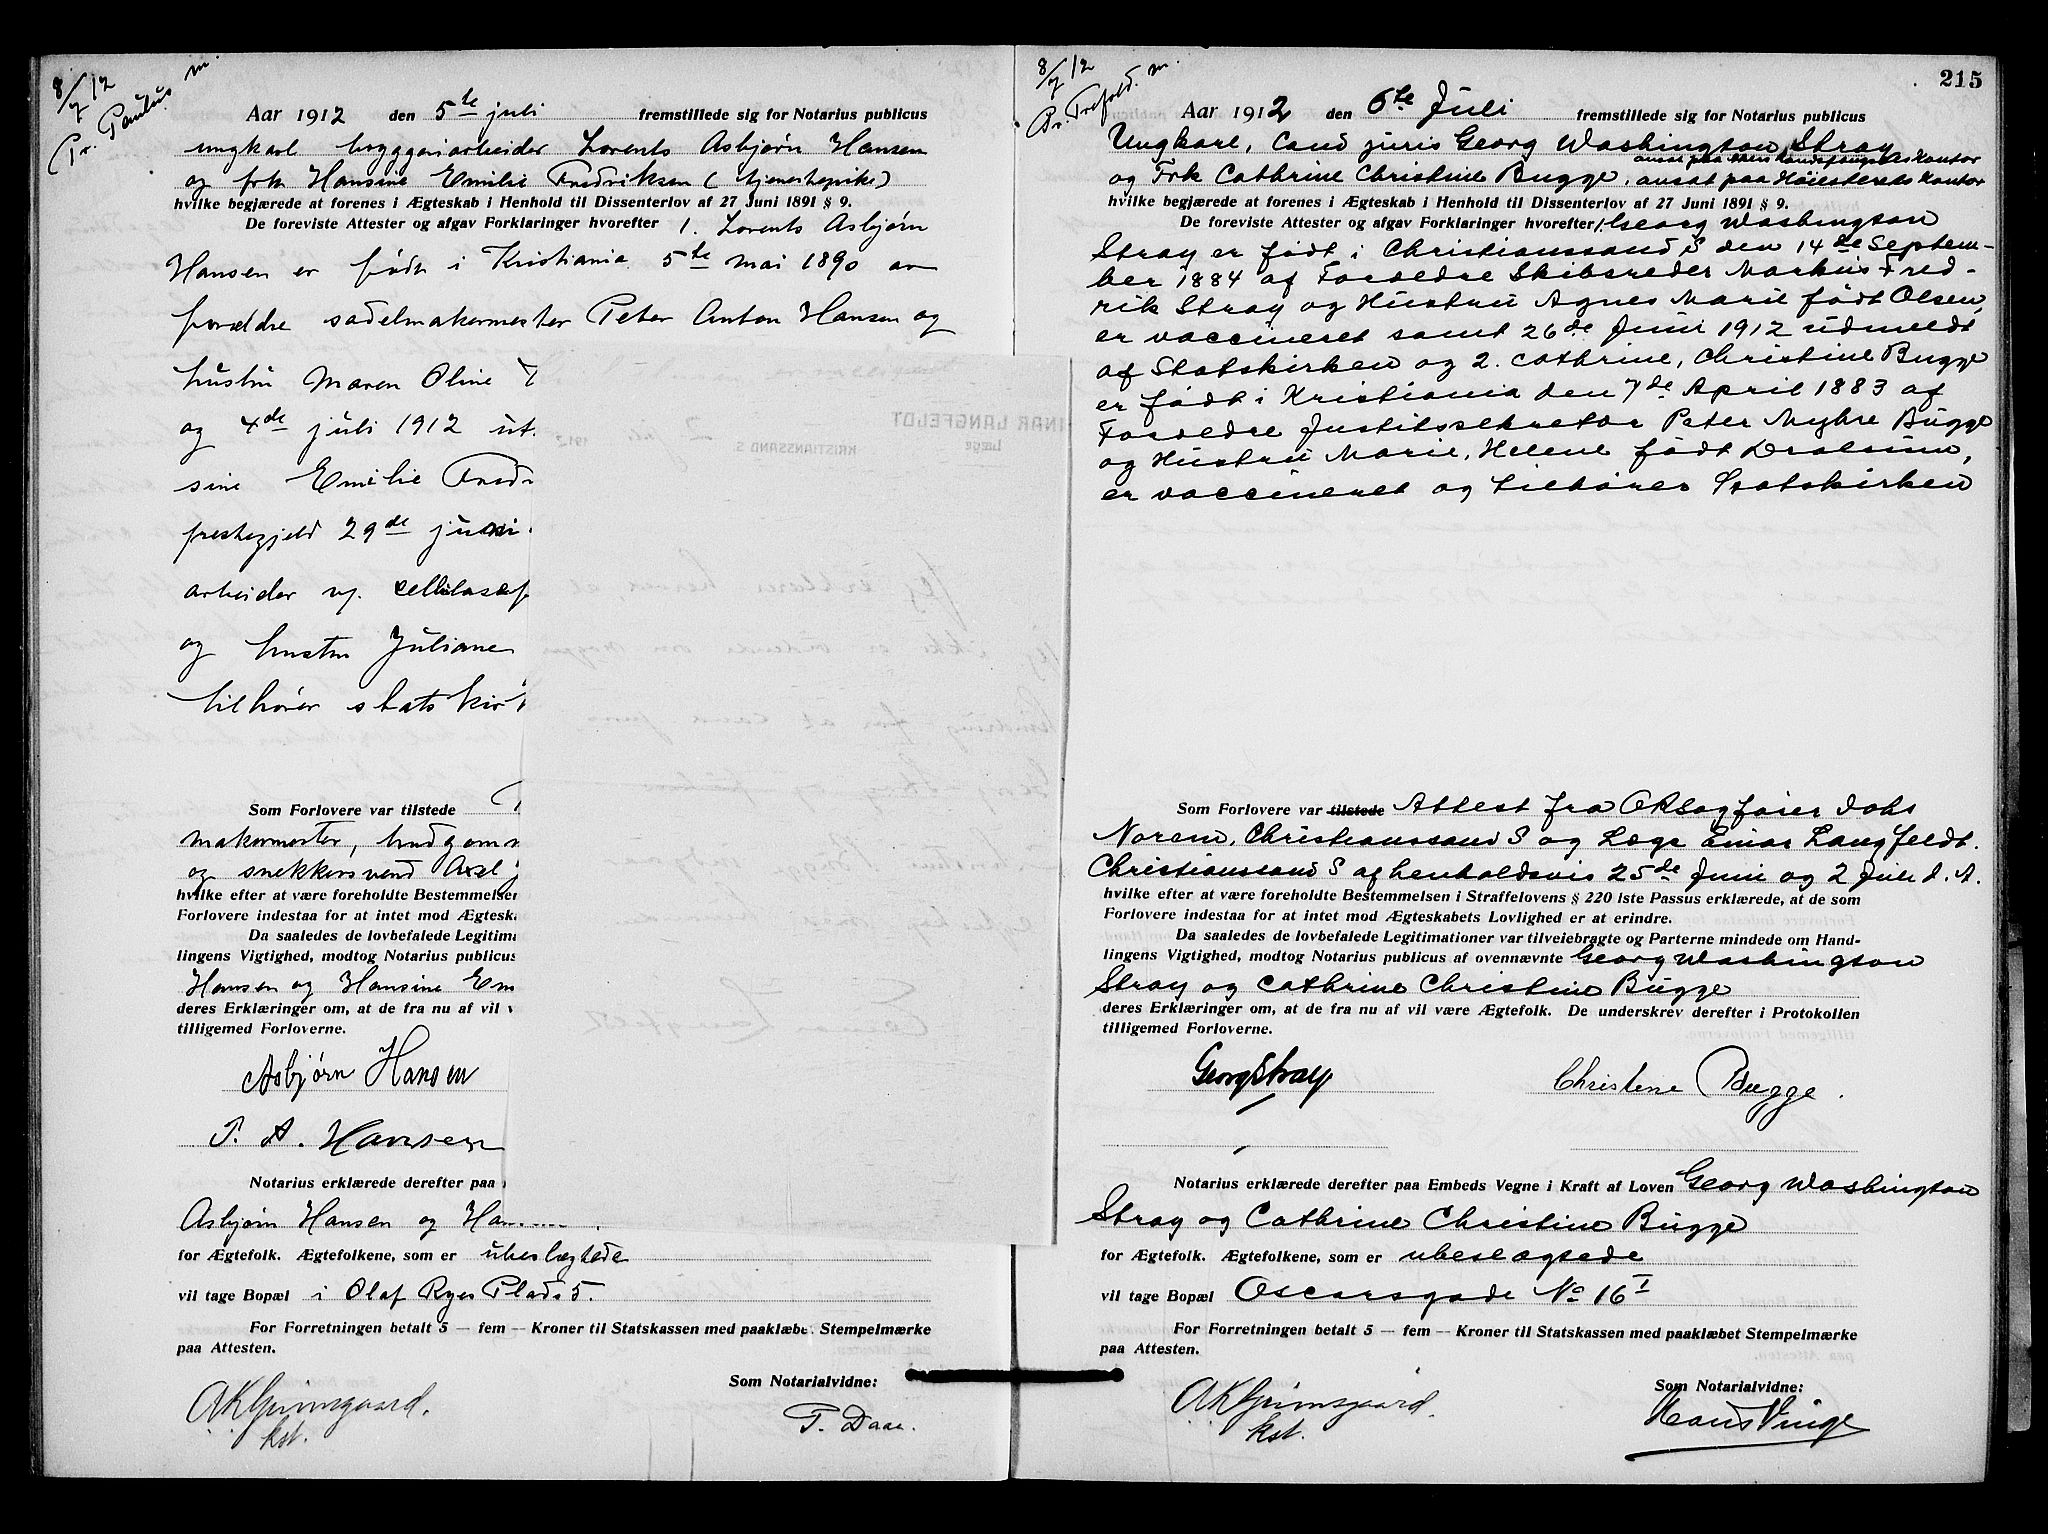 8/7 12
Pr. Paulus m.
Aar 1912 den 5te juli fremstillede sig for Notarius publicus
ungkarl bryggeriarbeider Lorents Asbjørn Hansen
og frk Hansine Emilie Fredriksen (tjenestepike)
hvilke begjærede at forenes i Ægteskab i Henhold til Dissenterlov af 27 Juni 1891 § 9.
De foreviste Attester og afgav Forklaringer hvorefter 1. Lorents Asbjørn
Hansen er født i Kristiania 5te mai 1890 av
forældre sadelmakermester Peter Anton Hansen og
hustru Maren Oline
og 4de juli 1912 ut.
sine Emilie Fredr
prestegjeld 29de juni
arbeider v. cellulosef
og hustru Juliane
tilhører statskir
Som Forlovere var tilstede
makermester, brudgom
og snekkersvend Axel
hvilke efter at være foreholdte Bestemmelser
Forlovere indestaa for at intet mod Ægteska
Da saaledes de lovbefalede Legitima
lingens Vigtighed, modtog Notarius publicus
Hansen og Hansine Em
deres Erklæringer om, at de fra nu af vil v
tilligemed Forloverne.
Asbjørn Hansen
P. A. Hansen
Notarius erklærede derefter paa
Asbjørn Hansen og Han
for Ægtefolk. Ægtefolkene, som er ubeslægtede
vil tage Bopæl i Olaf Ryes Plads 5.
For Forretningen betalt 5 — fem — Kroner til Statskassen med paaklæbe. Stempelmærke
paa Attesten.
Som Notarialvidne:
A K Grimsgaard.
kst.
P. Daae.
215
8/7 12
Pr. Trefold. m.
Aar 1912 den 6te Juli fremstillede sig for Notarius publicus
Ungkarl, Cand juris Georg Washington Stray
og Frk Cathrine Christine Bugge, ansat paa Høiesterets kontor
hvilke begjærede at forenes i Ægteskab i Henhold til Dissenterlov af 27 Juni 1891 § 9.
De foreviste Attester og afgav Forklaringer hvorefter 1. Georg Washington
Stray er født i Christianssand S den 14de Septem-
ber 1884 af Forældre Skibsreder Markus Fred-
rik Stray og Hustru Agnes Marie født Olsen,
er vaccineret samt 26de Juni 1912 udmeldt
af Statskirken og 2. Cathrine, Christine Bugge
er født i Kristiania den 7de April 1883 af
Forældre Justitssekretær Peter Myhre Bugge
og Hustru Marie, Helene født Dralsum,
er vaccineret og tilhører Statskirken
Som Forlovere var tilstede Attest fra ORSagfører Johs
Norem, Christianssand S og Læge Einar Langfeldt.
Christianssand S af henholdsvis 25de Juni og 2 Juli d. A.
hvilke efter at være foreholdte Bestemmelsen i Straffelovens § 220 1ste Passus erklærede, at de som
Forlovere indestaa for at intet mod Ægteskabets Lovlighed er at erindre.
Da saaledes de lovbefalede Legitimationer var tilveiebragte og Parterne mindede om Hand-
lingens Vigtighed, modtog Notarius publicus af ovennævnte Georg Washington
Stray og Cathrine Christine Bugge
deres Erklæringer om, at de fra nu af vil være Ægtefolk. De underskrev derefter i Protokollen
tilligemed Forloverne.
Georg Stray Christine Bugge.
Notarius erklærede derefter paa Embeds Vegne i Kraft af Loven Georg Washington
Stray og Cathrine Christine Bugge
for Ægtefolk. Ægtefolkene, som er ubeslægtede
vil tage Bopæl Oscarsgade No 16 I
For Forretningen betalt 5 — fem — Kroner til Statskassen med paaklæbet Stempelmærke
paa Attesten.
Som Notarialvidne:
A K Grimsgaard.
kst.
Hans Vinge